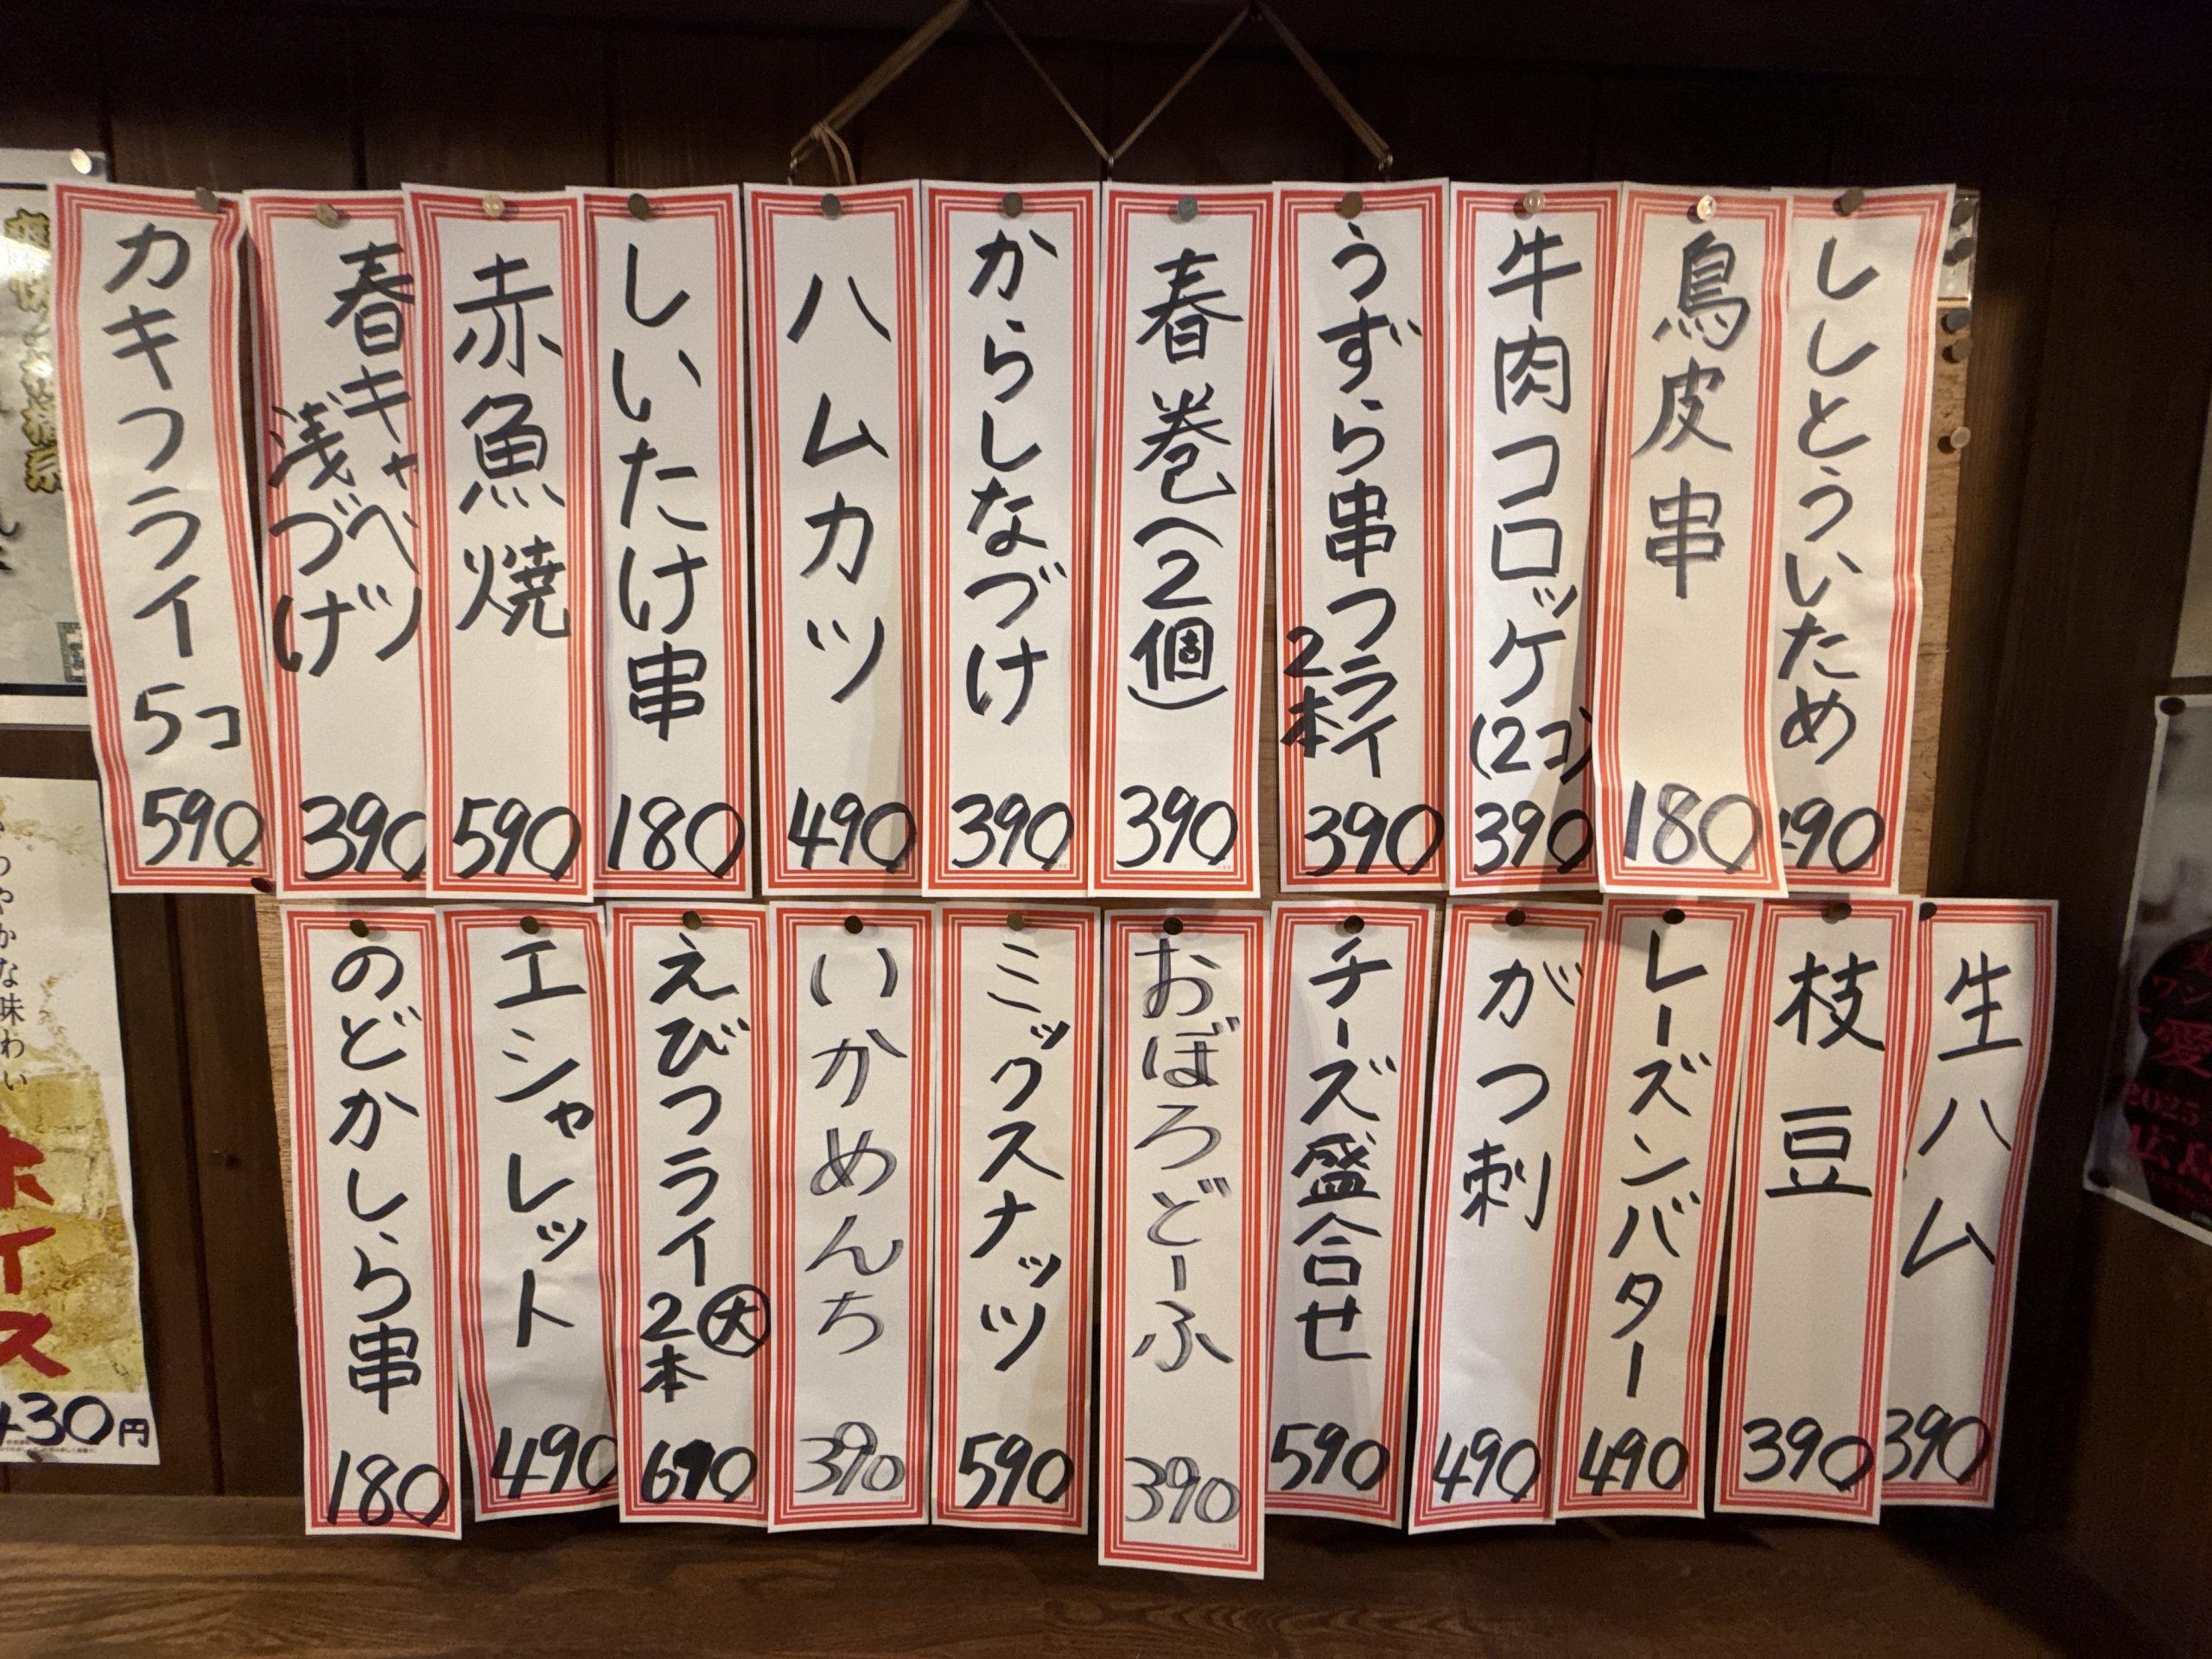 ししとういため
490
鳥皮串
180
牛肉コロッケ
(2コ)
390
うずら串フライ
2本
390
春巻(2個)
390
からしなづけ
390
ハムカツ
490
しいたけ串
180
赤魚焼
590
春キャベツ
浅づけ
390
カキフライ 5コ
590
生ハム
390
枝豆
390
レーズンバター
490
がつ刺
490
チーズ盛合せ
590
おぼろどーふ
390
ミックスナッツ
590
いかめんち
390
えびフライ
大
2本
690
エシャレット
490
のどかしら串
180
やかな味わい
ホイス
430円
2025